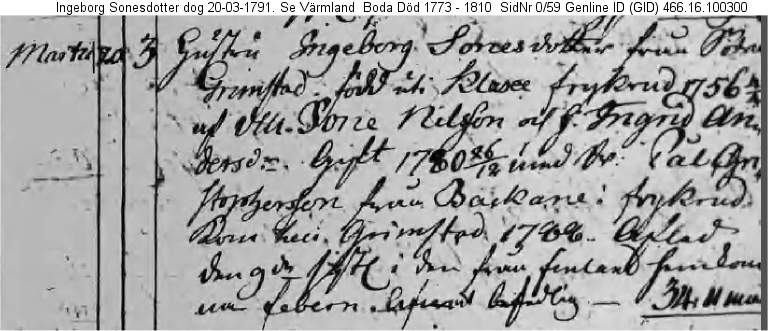 Ingeborg Sonesdotter dog 20-03-1791. Se Värmland Boda Död 1773 - 1810 SidNr 0/59 Genline ID (GID) 466.16.100300
Martii 20 3 Hustru Ingeborg Sonesdotter frun Södra
Grimstad. född uti Klasee frykerud 1756
af Sone Nilsson och h. Ingrid An
dersdr. Gift 1780 26/12 med Dr: Pål Chri
stophersson från Backane i frykerud.
Kom hit Grimstad 1788. Aflad
den 9de i den från finland hemkom
na febern. 34. 4 mån